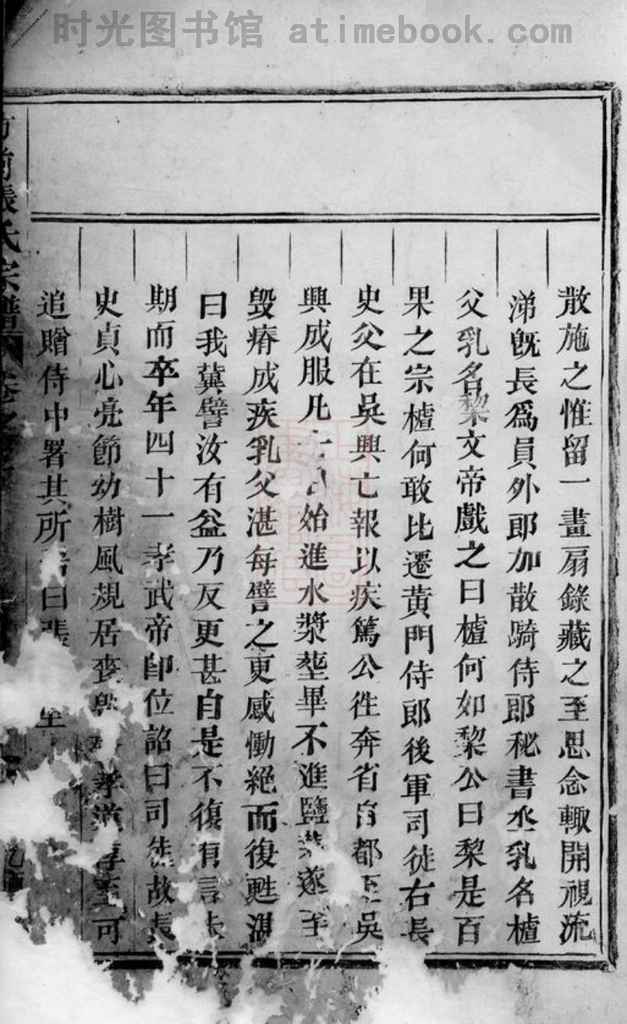 时光图书馆 atimebook.com
散施之惟留一畫扇錄藏之至思念輙開視流
涕旣長爲員外郎加散騎侍郎秘書丞乳名樝
父乳名棃文帝戲之曰樝何如棃公曰棃是百
果之宗樝何敢比遷黄門侍郎後軍司徒右長
史父在吳興亡報以疾篤公徃奔省自都至吳
興成服凡十始進水漿塟畢不進鹽菜遂至
毀瘠成疾乳父湛每譬之更感慟絕而復甦湛
曰我冀譬汝有益乃反更甚自是不復有言未
期而卒年四十一孝武帝卽位詔曰司徒故長
史貞心亮節幼樹風規居喪孝道淳至可
追贈侍中署其所居曰張
張氏宗譜 卷之